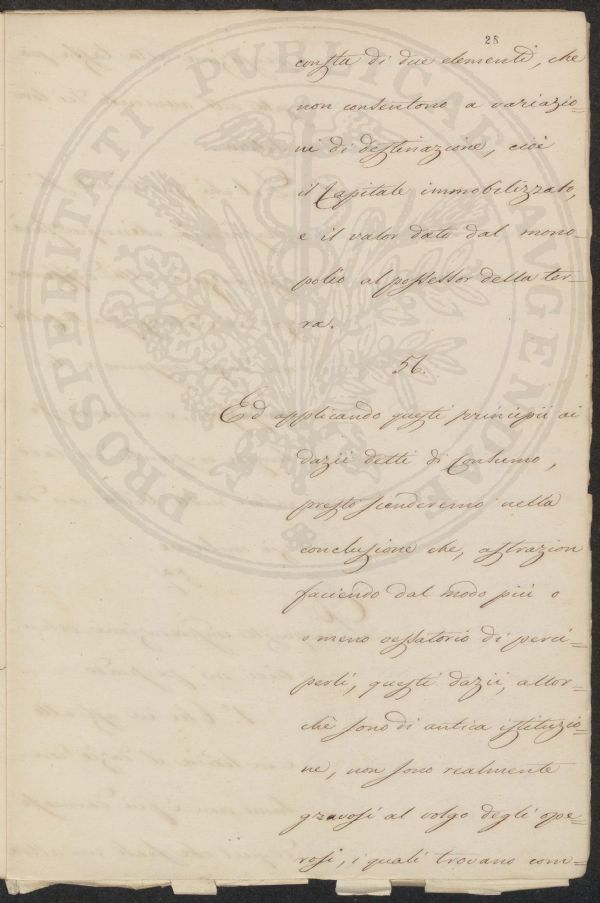 28
consta di due elementi, che
non consentono a variazio=
ni di destinazione, cioè
il Capitale immobilizzato,
e il valor dato dal mono-
polio al possessor della ter-
ra.
56.
Ed applicando questi principii ai
dazii detti di Consumo,
presto scenderemo nella
conclusione che, astrazion
facendo dal modo più o
o meno vessatorio di perci=
perli, questi dazii, allor=
chè sono di antica istituzio=
ne, non sono realmente
gravosi al volgo degli ope=
rosi, i quali trovano com=
PROSPERITATI PUBLICAE AUGENDAE